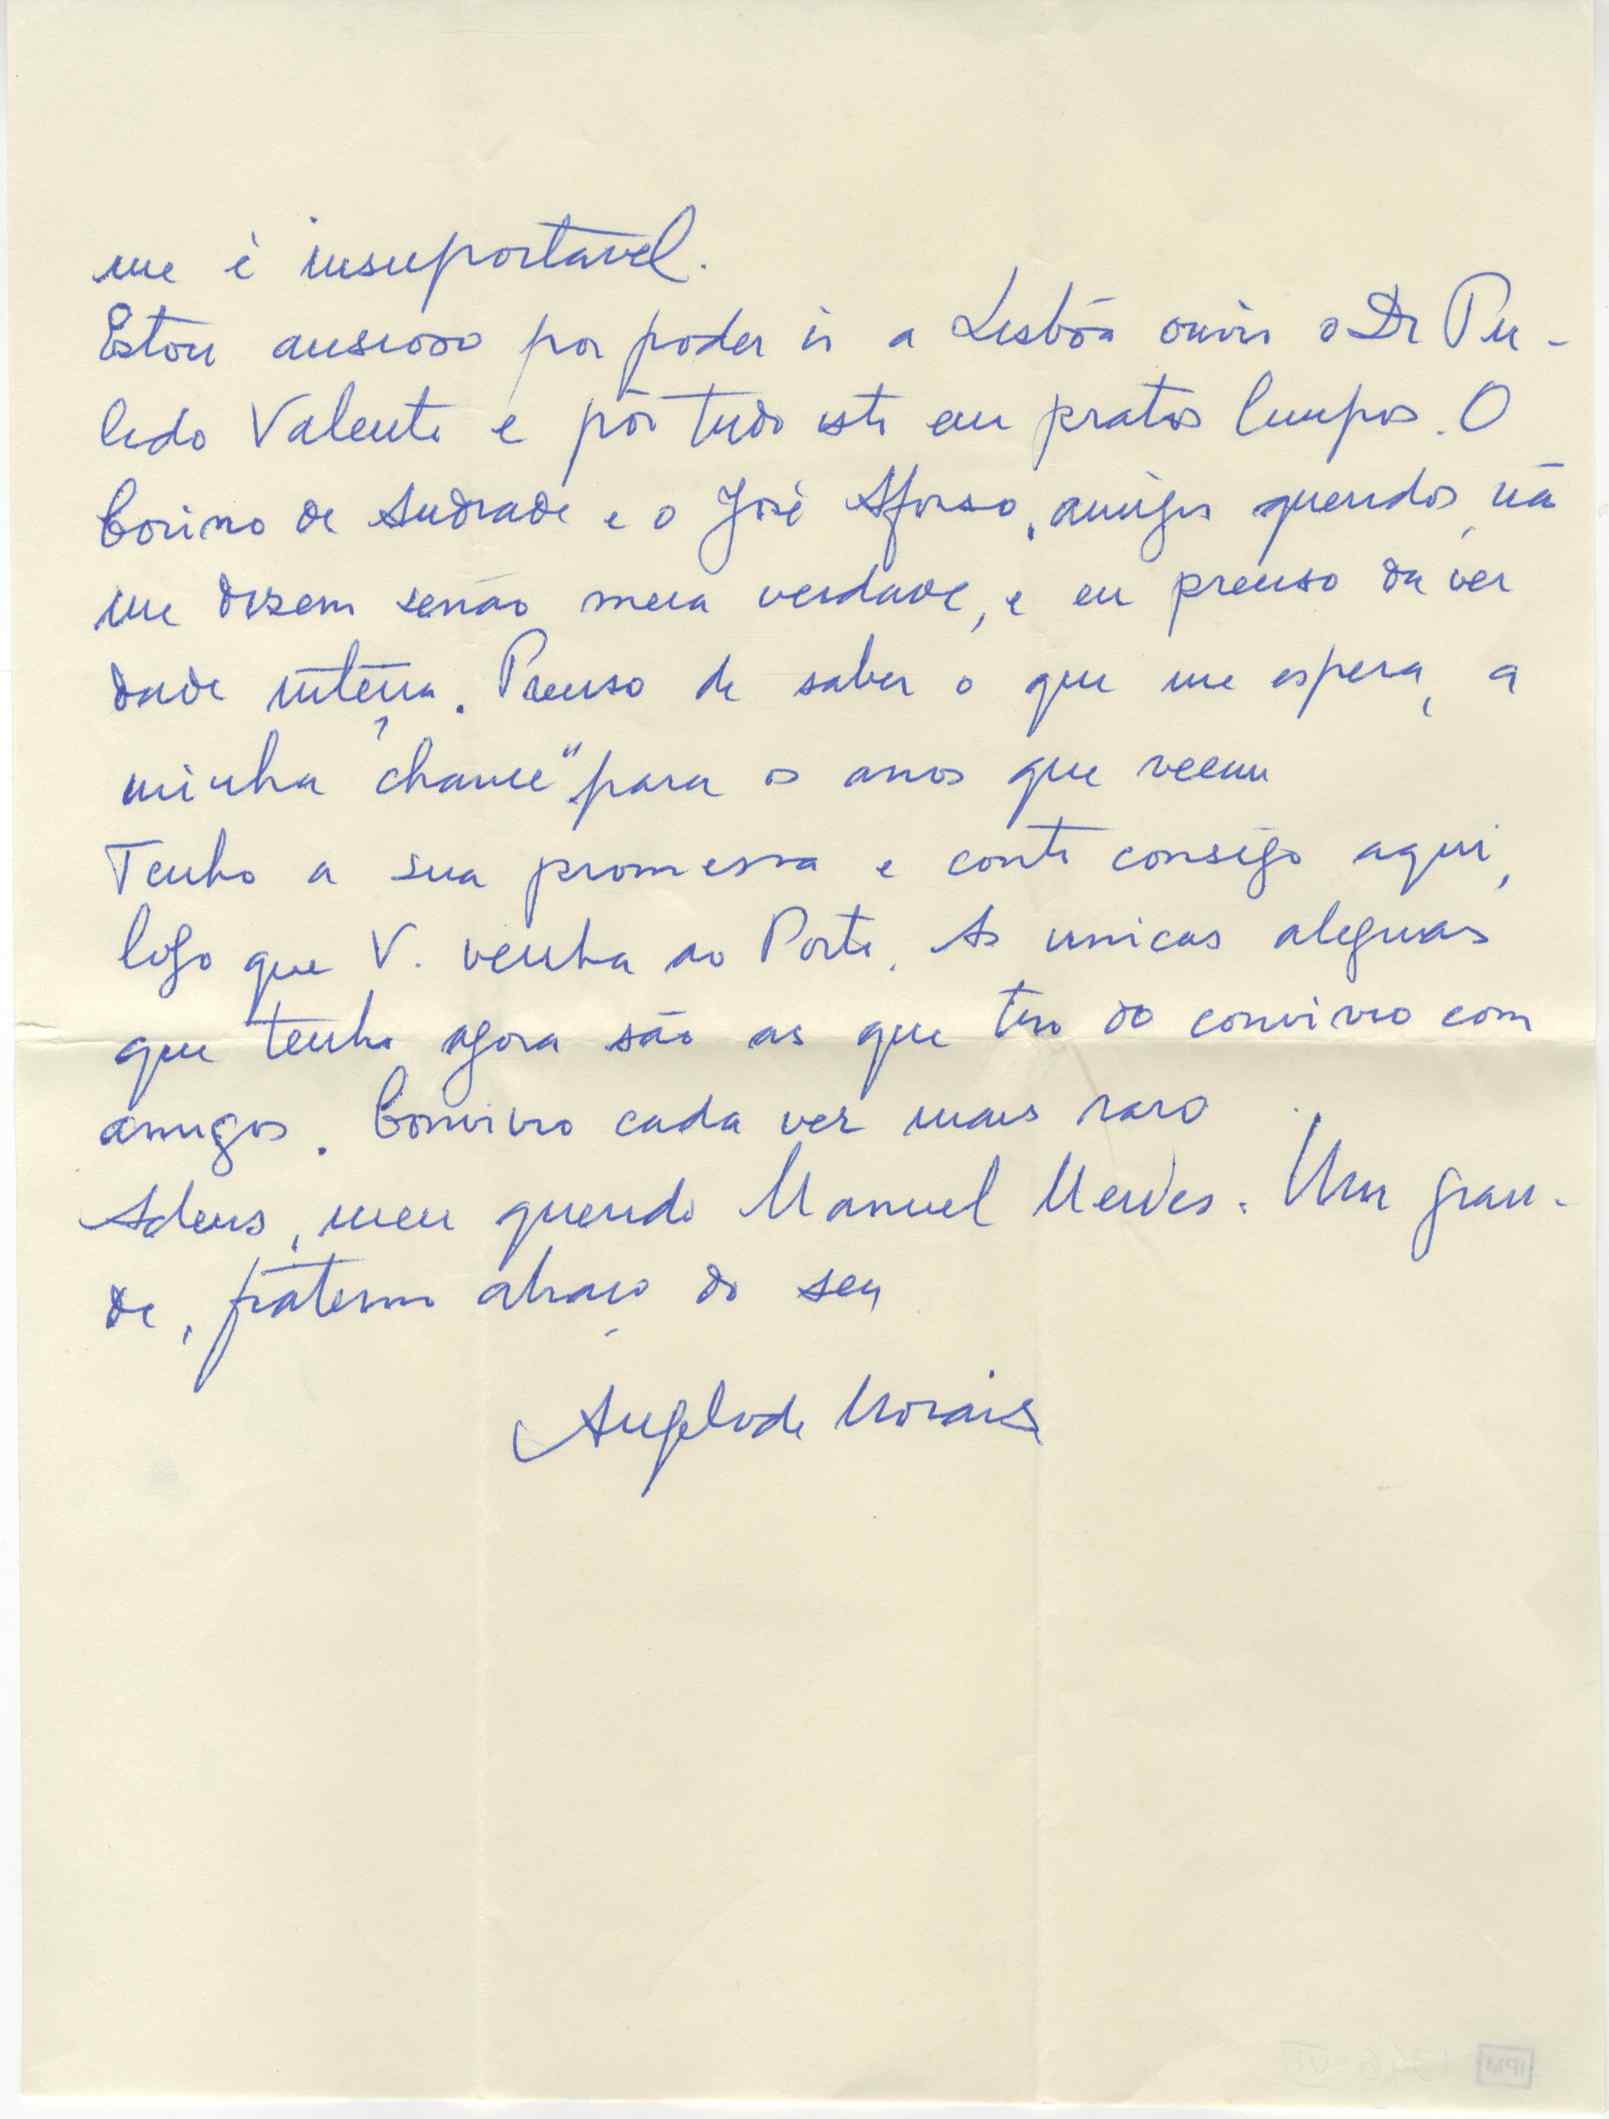 me é insuportavel.
Estou ansioso por poder ir a Lisbôa ouvir o Dr Pu-
lido Valente e pôr tudo isto em pratos limpos. O
Corino de Andrade e o José Afonso, amigos queridos, não
me dizem senão meia verdade, e eu preciso da ver
dade inteira. Preciso de saber o que me espera, a
minha "chance" para os anos que veem
Tenho a sua promessa e conto consigo aqui,
logo que V. venha ao Porto. As unicas alegrias
que tenho agora são as que tiro do convivio com
amigos. Convivio cada vez mais raro
Adeus, meu querido Manuel Mendes. Um gran-
de, fraterno abraço do seu
Angelo de Morais
IPM